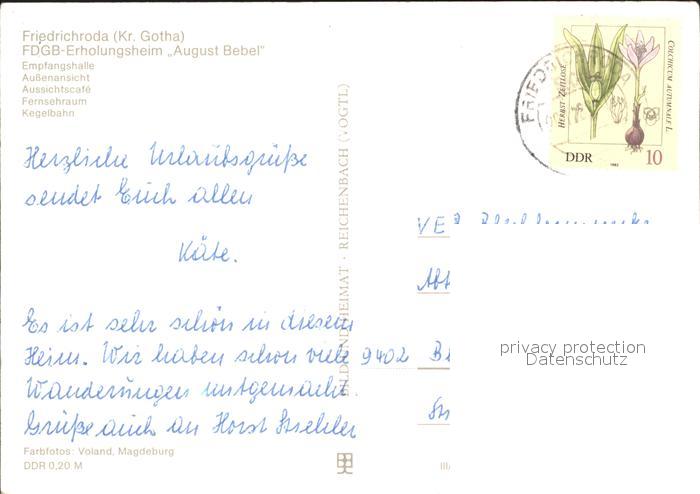 Friedrichroda (Kr. Gotha)
FDGB-Erholungsheim „August Bebel“
Empfangshalle
Außenansicht
Aussichtscafé
Fernsehraum
Kegelbahn
Herzliche Urlaubsgrüße
sendet Euch allen
Käte.
Es ist sehr schön in diesem
Heim. Wir haben schon viele
Wanderungen mitgemacht.
Grüße auch an Horst
Farbfotos: Voland, Magdeburg
DDR 0,20 M
BILD UND HEIMAT · REICHENBACH (VOGTL)
HERBST-ZEITLOSE
COLCHICUM AUTUMNALE L.
DDR 1982 10
FRIED
VE
Abt
9402
privacy protection
Datenschutz
III/